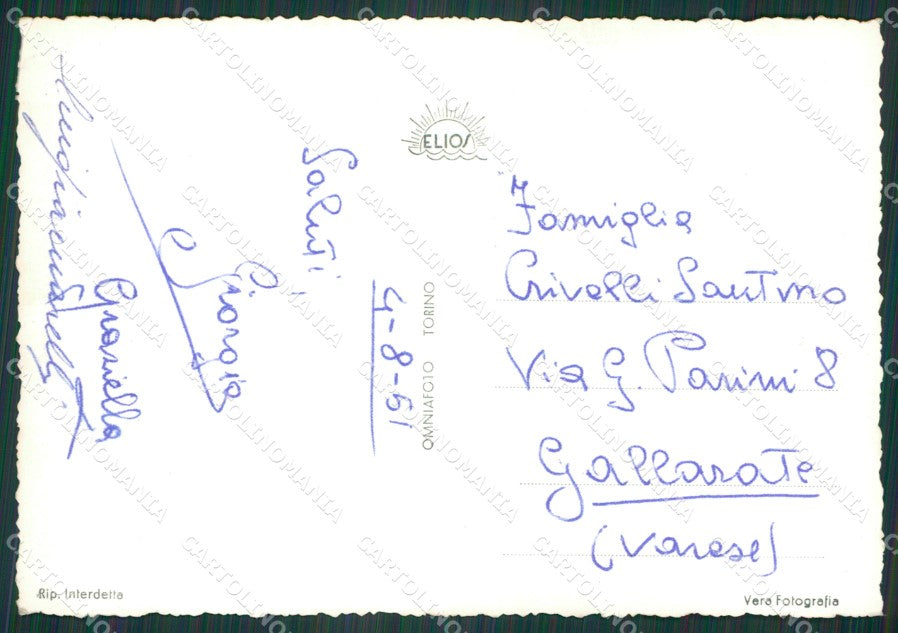 ELIOS
Saluti,
4-8-51
Giorgia
Graziella
OMNIAFOTO TORINO
Famiglia
Crivelli Santino
Via G. Parini 8
Gallarate
(Varese)
Rip. Interdetta
Vera Fotografia
CARTOLINOMANIA